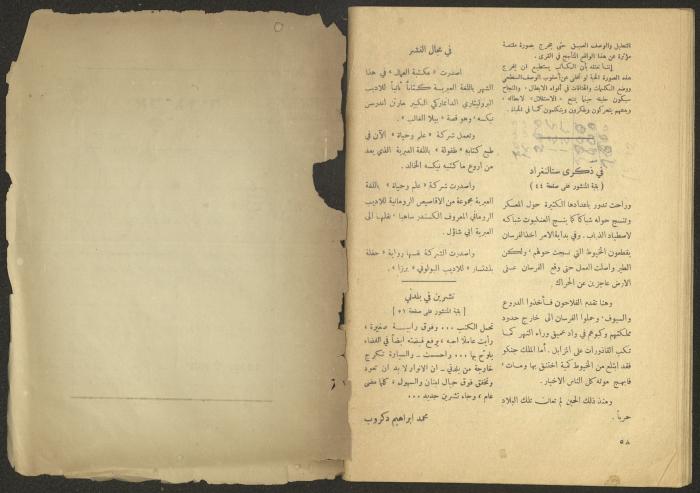 التحليل والوصف العميق حتى يخرج بصورة مقنعة
مؤثرة عن هذا الواقع التاجج في القرى .
إننا نعتقد بأن الكاتب يستطيع ان يخرج
هذه الصورة الحية لو تخلى عن أسلوب الوصف السطحي
ووضع الكلمات والخطابات في أفواه الابطال ، والنجاح
سيكون حليفه حينما يمنح « الاستقلال » لابطاله ،
ويدعهم يتحركون ويفكرون ويتكلمون كما في الحياة .
في ذكرى ستالنغراد
( بقية المنشور على صفحة ٤٤ )
وراحت تدور باعدادها الكثيرة حول المعسكر
وتنسج حوله شباكا كما ينسج العنكبوت شباكه
لاصطياد الذباب . وفي بداية الامر اخذ الفرسان
يقطعون الخيوط التي نسجت حولهم ، ولكن
الطير واصلت العمل حتى وقع الفرسان على
الارض عاجزين عن الحراك .
وهنا تقدم الفلاحون فأخذوا الدروع
والسيوف ، وحملوا الفرسان الى خارج حدود
مملكتهم وكبوهم في واد عميق وراء النهر كما
تكب القاذورات على المزابل . أما الملك جنكو
فقد ابتلع من الخيوط كمية اختنق بها ومات ؛
فابهج موته كل الناس الاخيار .
ومنذ ذلك الحين لم تعان تلك البلاد
حرباً .
٥٨
في مجال النشر
اصدرت « مكتبة العمال » في هذا
الشهر باللغة العبرية كتاباً ثانياً للاديب
البروليتاري الدانماركي الكبير مارتن اندرسن
نيكسه ، وهو قصة « بيلا الغالب » .
وتعمل شركة « علم وحياة » الآن في
طبع كتابه « طفولة » باللغة العبرية الذي يعد
من اروع ما كتبه نيكسه الخالد .
واصدرت شركة « علم وحياة » باللغة
العبرية مجموعة من الاقاصيص الرومانية للاديب
الروماني المعروف الكسندر ساهيا ، نقلها الى
العبرية ابي شاؤل .
واصدرت الشركة نفسها رواية « حفلة
للاديب البولوني « برزا » .
تشرين في بلدتي
[ بقية المنشور على صفحة ٥١ ]
تحمل الكتب ... وفوق رابية صغيرة ،
رأيت عاملا احبه ، يرفع قبضته ايضاً في الفضاء
يلوّح بها ... واحسست – والسيارة تتكرج
خارجة من بلدتي – ان الانوار لا بد ان تعود
وتخفق فوق جبال لبنان والسهول ، كلما مضى
عام ، وجاء تشرين جديد ...
محمد ابراهيم دكروب